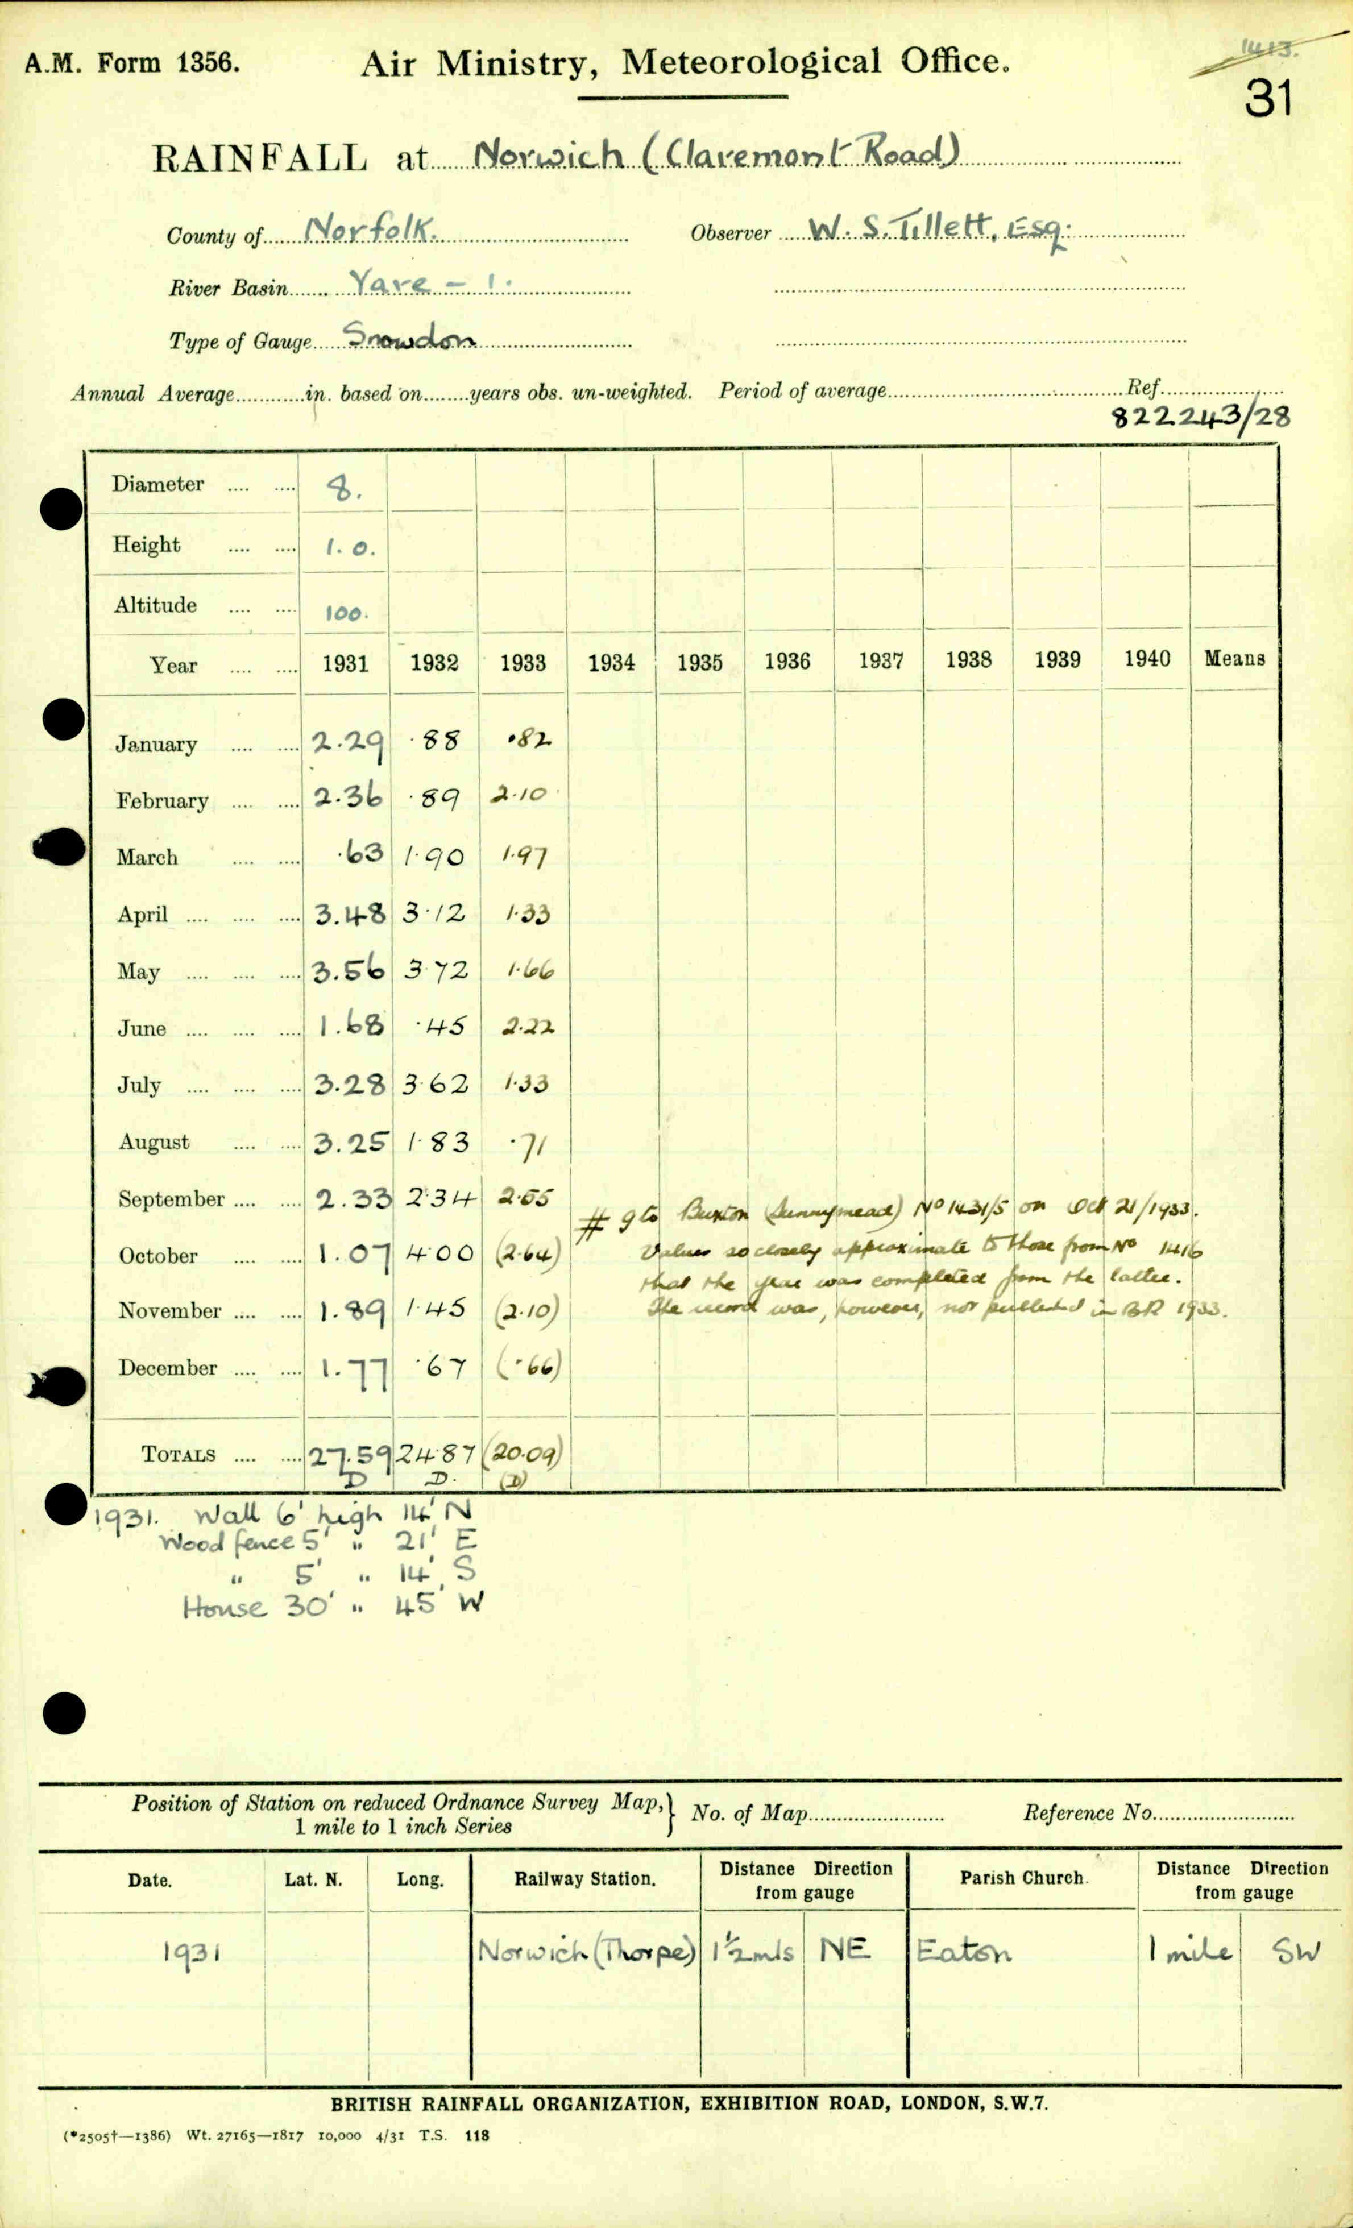 1413.
A.M. Form 1356. Air Ministry, Meteorological Office.
31
RAINFALL at Norwich (Claremont Road)
County of Norfolk. Observer W. S. Tillett, Esq.
River Basin Yare - 1.
Type of Gauge Snowdon
Annual Average in. based on years obs. un-weighted. Period of average Ref.
822243/28
Diameter 8.
Height 1.0.
Altitude 100.
Year 1931 1932 1933 1934 1935 1936 1937 1938 1939 1940 Means
January 2.29 .88 .82
February 2.36 .89 2.10
March .63 1.90 1.97
April 3.48 3.12 1.33
May 3.56 3.72 1.66
June 1.68 .45 2.22
July 3.28 3.62 1.33
August 3.25 1.83 .71
September 2.33 2.34 2.55
# g to Buxton (Sunnymead) No 1431/5 on Oct 21/1933.
October 1.07 4.00 (2.64)
Values so closely approximate to those from No 1416
that the year was completed from the latter.
November 1.89 1.45 (2.10)
The record was, however, not published in BR 1933.
December 1.77 .67 (.66)
TOTALS 27.59 24.87 (20.09)
D D. (D)
1931. Wall 6' high 14' N
Wood fence 5' " 21' E
" 5' " 14' S
House 30' " 45' W
Position of Station on reduced Ordnance Survey Map, } No. of Map Reference No.
1 mile to 1 inch Series
Date. Lat. N. Long. Railway Station. Distance Direction from gauge Parish Church. Distance Direction from gauge
1931 Norwich (Thorpe) 1½ mls NE Eaton 1 mile SW
BRITISH RAINFALL ORGANIZATION, EXHIBITION ROAD, LONDON, S.W.7.
(*2505†—1386) Wt. 27165—1817 10,000 4/31 T.S. 118